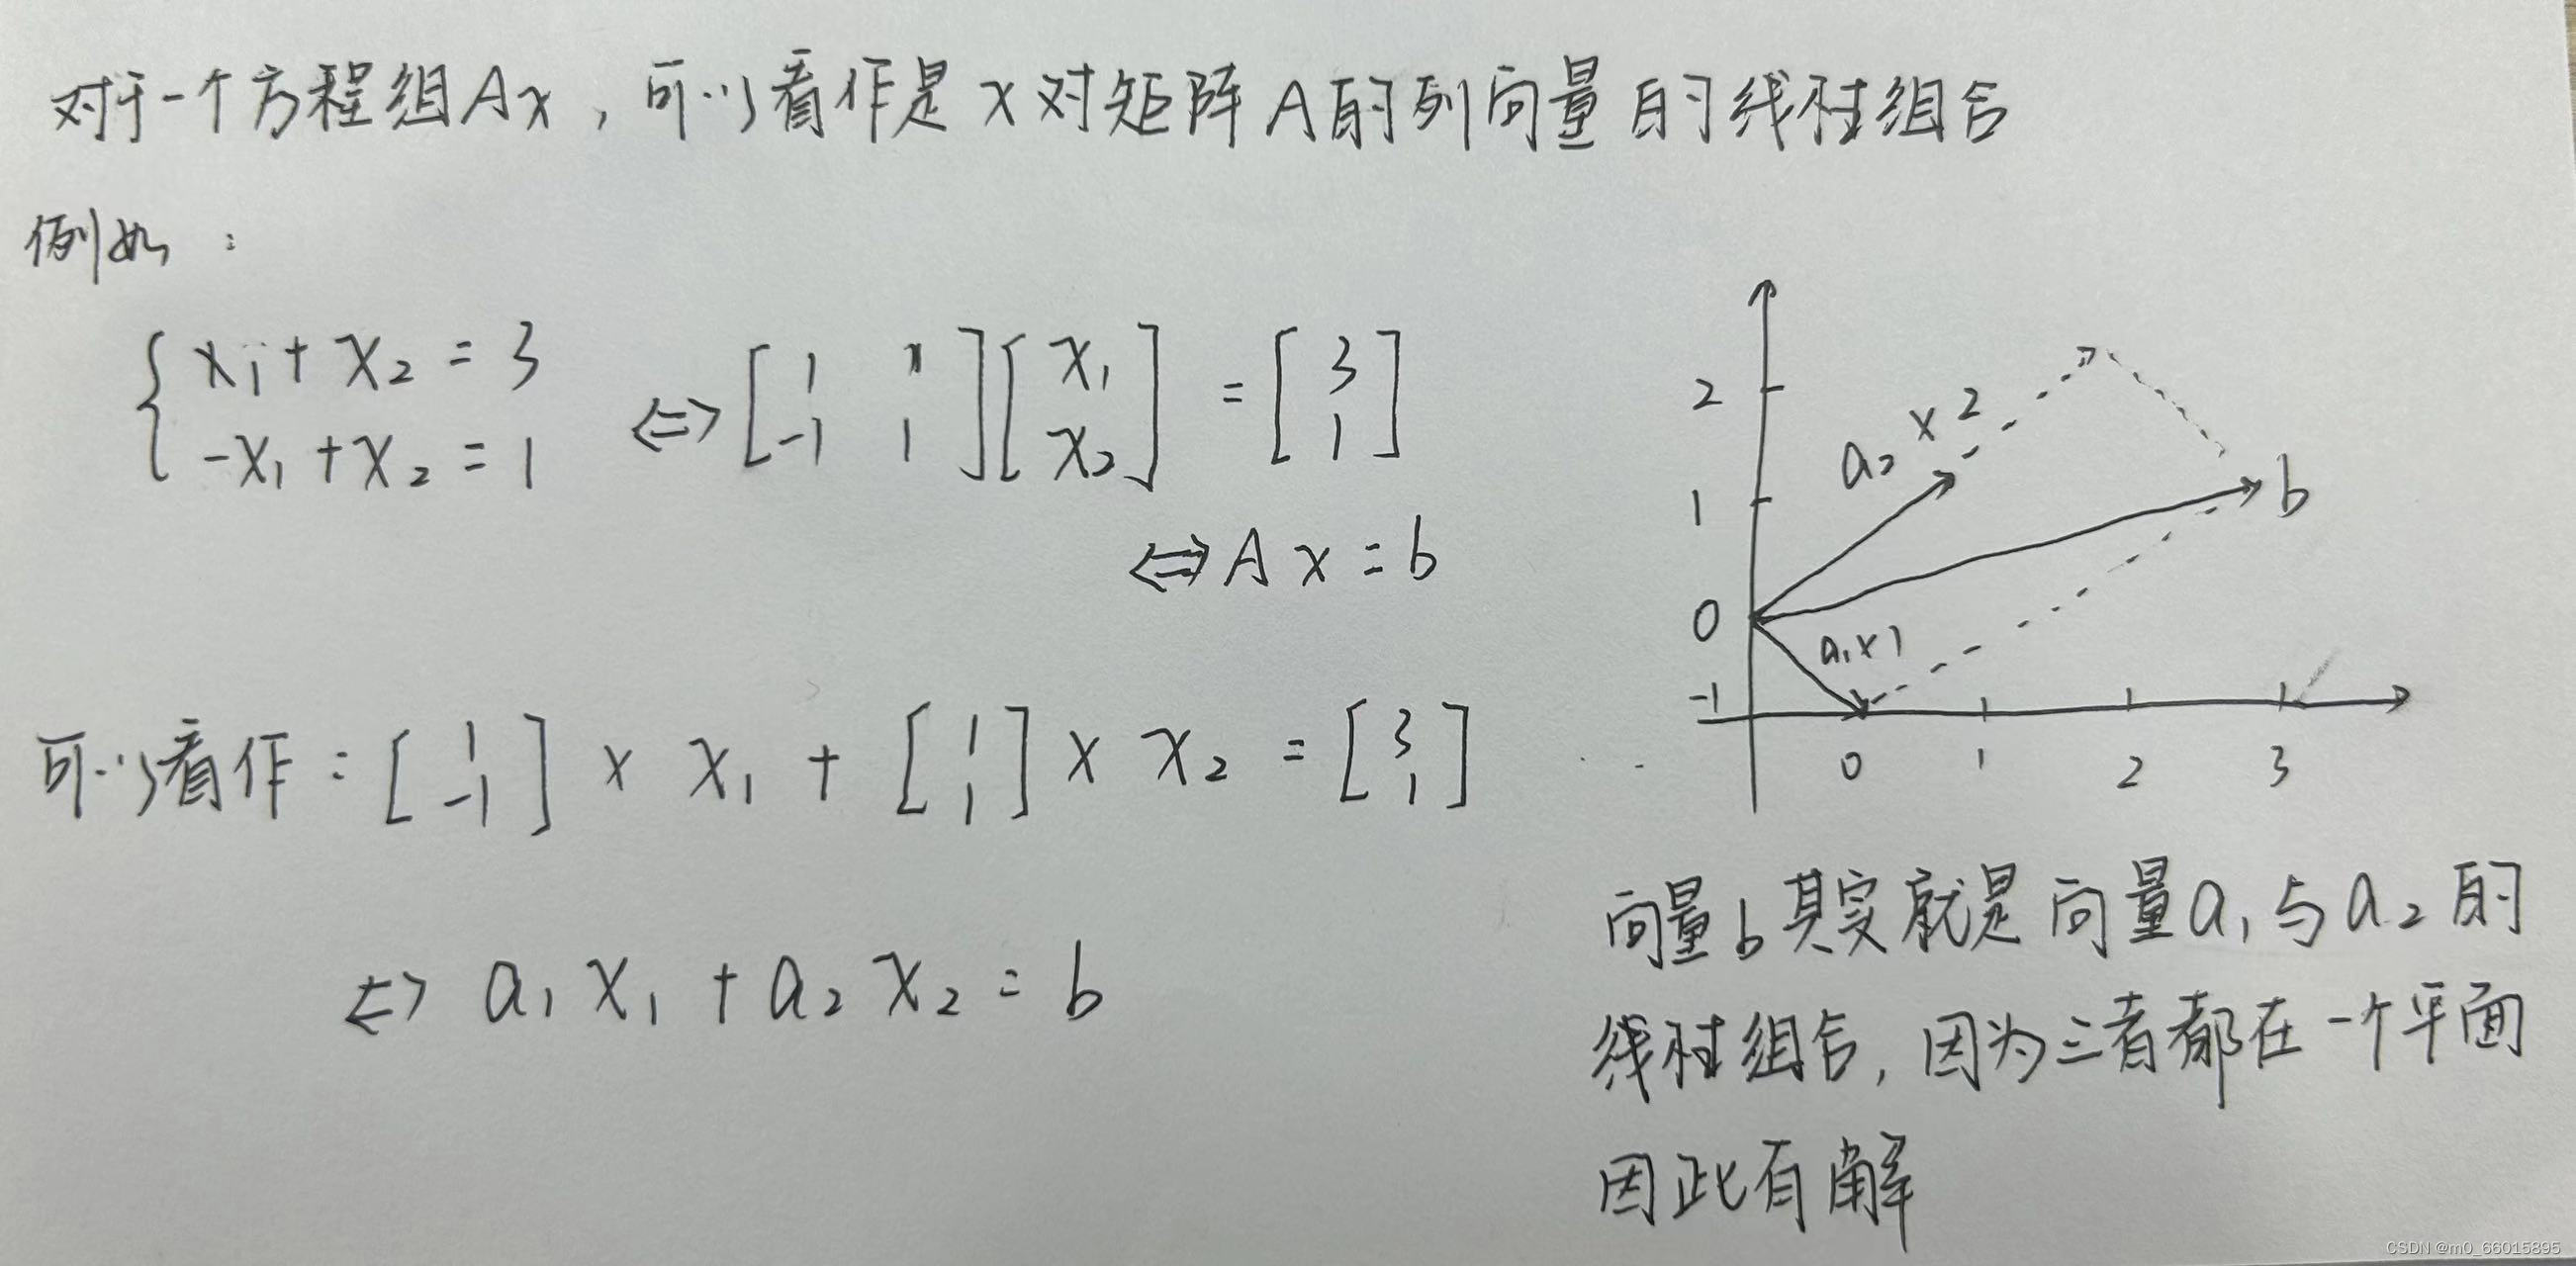 对于一个方程组Ax，可以看作是x对矩阵A的列向量的线性组合
例如：
{ x₁ + x₂ = 3
-x₁ + x₂ = 1
⇔ [1 1; -1 1] [x₁; x₂] = [3; 1]
⇔ Ax = b
可以看作：[1; -1] × x₁ + [1; 1] × x₂ = [3; 1]
⇔ a₁x₁ + a₂x₂ = b
2
1
0
-1
a₂ × 2
b
a₁ × 1
0 1 2 3
向量b其实就是向量a₁与a₂的
线性组合，因为三者都在一个平面
因此有解
CSDN @m0_66015895